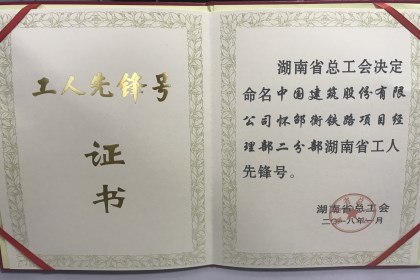 工人先锋号
证
书
湖南省总工会决定
命名中国建筑股份有限
公司怀邵衡铁路项目经
理部二分部湖南省工人
先锋号。
湖南省总工会
二〇一八年一月